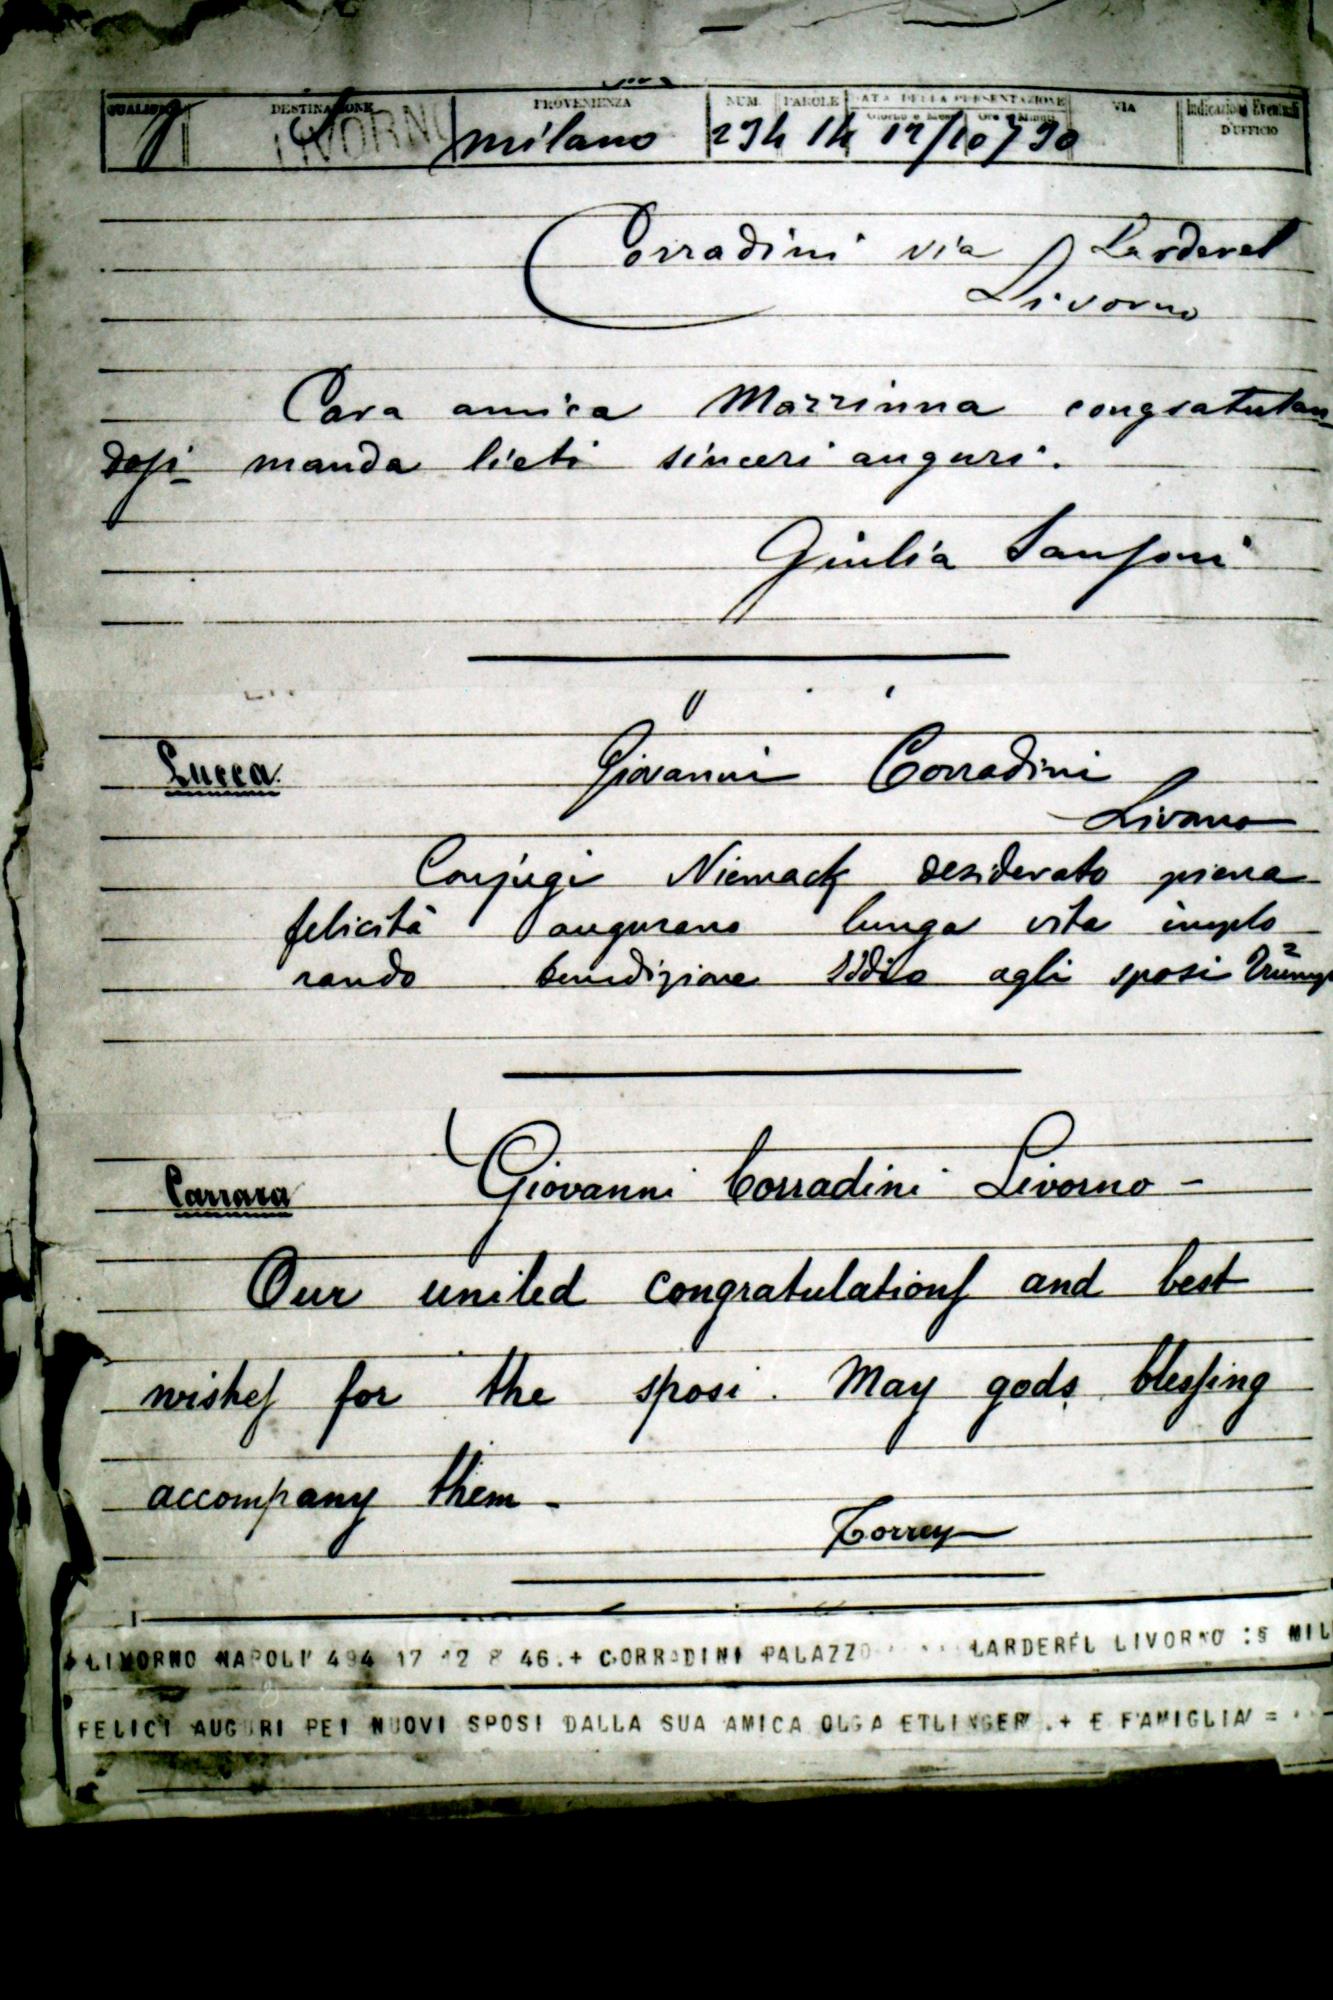 QUALIFICA DESTINAZIONE PROVENIENZA NUM. PAROLE DATA DELLA PRESENTAZIONE VIA Indicazioni Eventuali
Giorno e Mese Ore e Minuti D'UFFICIO
LIVORNO milano 294 14 17/10/30
Corradini via Larderel
Livorno
Cara amica Mazzinna congratulan-
dosi manda lieti sinceri auguri.
Giulia Sansoni
Lucca Giovanni Corradini
Livorno
Conjugi Niemack desiderato piena
felicità augurano lunga vita implo
rando benedizione Iddio agli sposi
Carrara Giovanni Corradini Livorno -
Our united congratulations and best
wishes for the sposi. May gods blessing
accompany them -
Torrey
LIVORNO NAPOLI 494 17 12 8 46.+ CORRADINI PALAZZO LARDEREL LIVORNO
FELICI AUGURI PEI NUOVI SPOSI DALLA SUA AMICA OLGA ETLINGER .+ E FAMIGLIA =